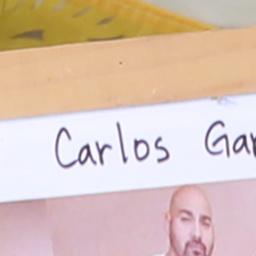 Carlos Gar